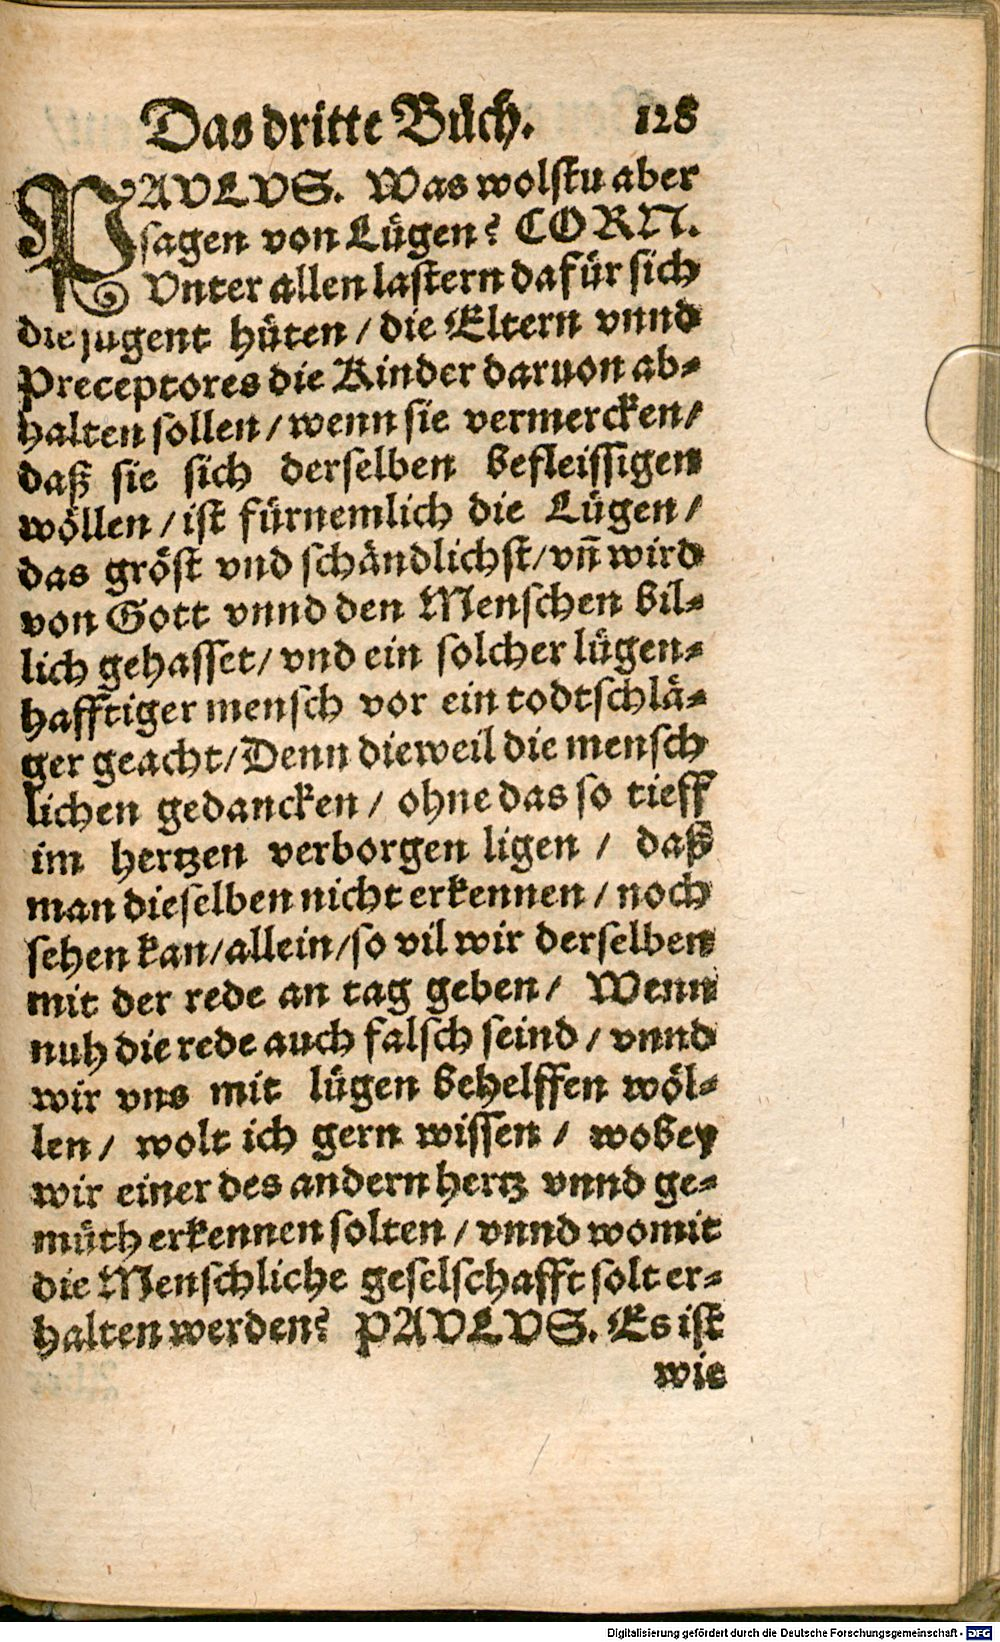 Das dritte Bůch. 128
PAVLVS. Was wolstu aber
sagen von Lügen? CORN.
Vnter allen lastern dafür sich
die jugent hüten / die Eltern vnnd
Preceptores die Kinder daruon ab-
halten sollen / wenn sie vermercken /
daß sie sich derselben befleissigen
wöllen / ist fürnemlich die Lügen /
das gröst vnd schändlichst / vn̄ wird
von Gott vnnd den Menschen bil-
lich gehasset / vnd ein solcher lügen-
hafftiger mensch vor ein todtschlä-
ger geacht / Denn dieweil die mensch
lichen gedancken / ohne das so tieff
im hertzen verborgen ligen / daß
man dieselben nicht erkennen / noch
sehen kan / allein / so vil wir derselben
mit der rede an tag geben / Wenn
nuh die rede auch falsch seind / vnnd
wir vns mit lügen behelffen wöl-
len / wolt ich gern wissen / wobey
wir einer des andern hertz vnnd ge-
müth erkennen solten / vnnd womit
die Menschliche geselschafft solt er-
halten werden? PAVLVS. Es ist
wie
Digitalisierung gefördert durch die Deutsche Forschungsgemeinschaft - DFG